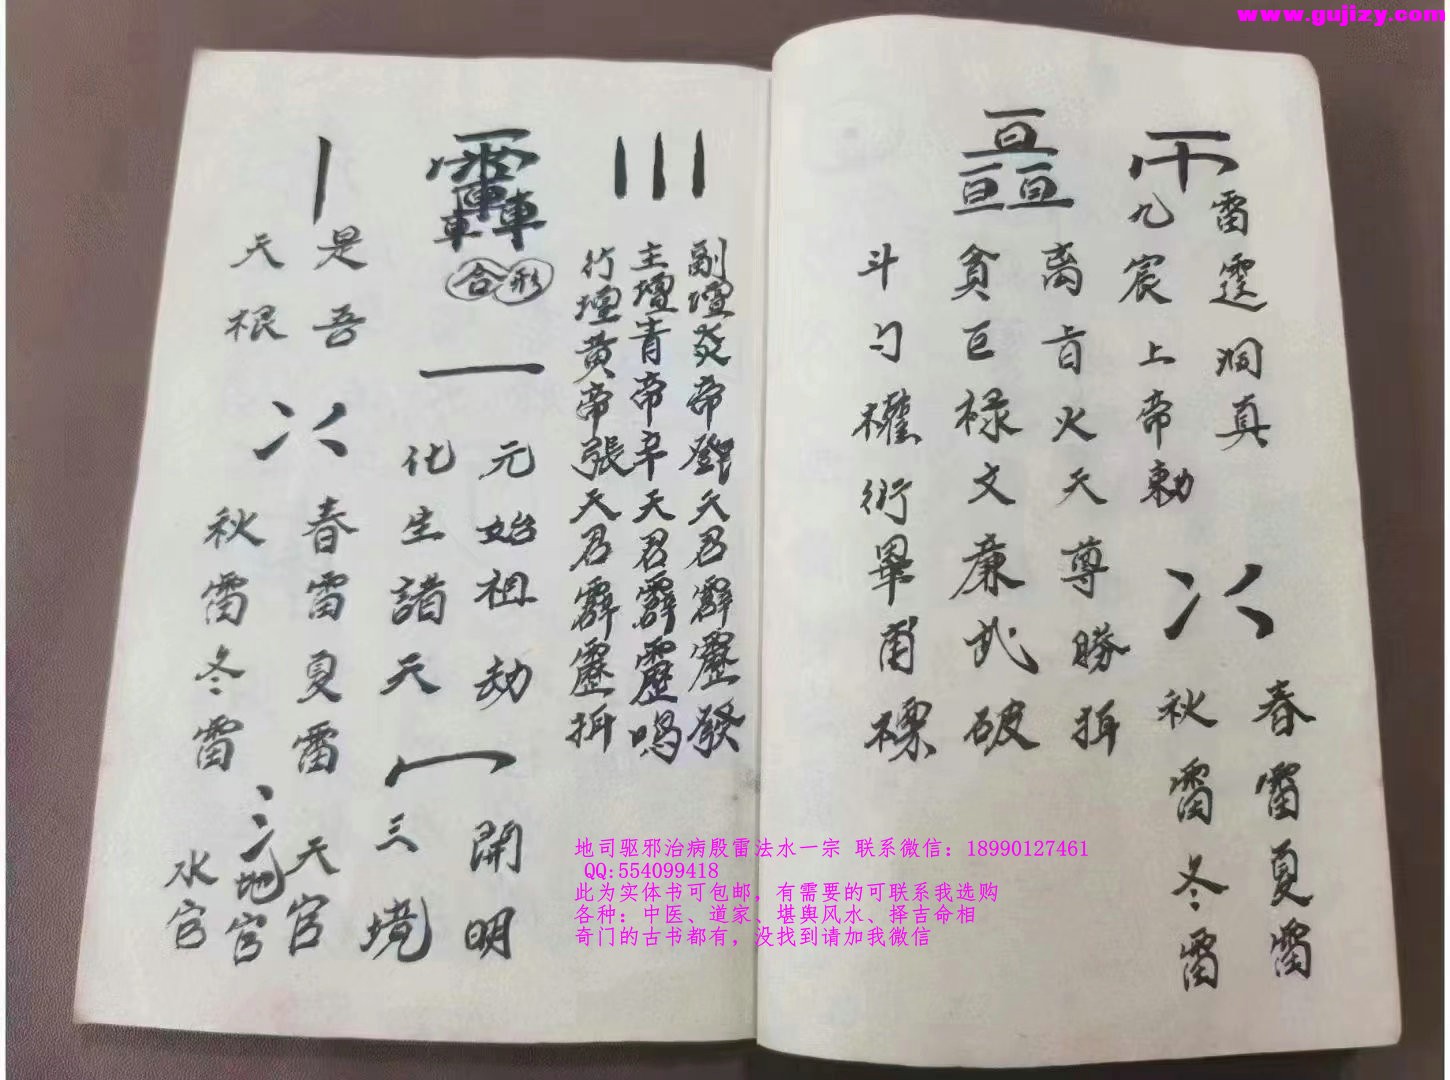 www.gujizy.com
雷霆洞真
九宸上帝勅
春雷夏雷
秋雷冬雷
離旨火天尊勝抂
貪巨禄文廉武破
斗勺衍畢甫
副壇炎帝鄧天君霹靂發
主壇青帝辛天君霹靂喝
行壇黄帝張天君霹靂抂
合形
元始祖劫
化生諸天
開明
三境
是吾
天根
春雷夏雷
秋雷冬雷
天官
地官
水官
地司驱邪治病殷雷法水一宗 联系微信：18990127461
QQ:554099418
此为实体书可包邮，有需要的可联系我选购
各种：中医、道家、堪舆风水、择吉命相
奇门的古书都有，没找到请加我微信